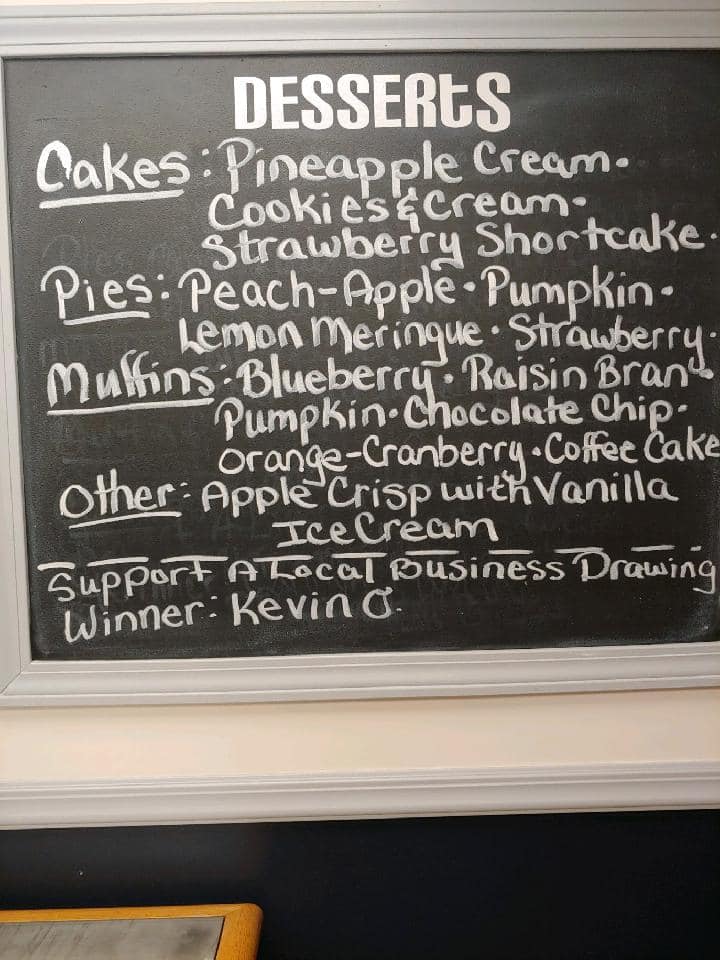 DESSERtS
Cakes: Pineapple Cream•
Cookies & Cream•
Strawberry Shortcake•
Pies: Peach-Apple • Pumpkin•
Lemon Meringue • Strawberry•
Muffins: Blueberry • Raisin Bran•
Pumpkin • Chocolate Chip•
Orange-Cranberry • Coffee Cake
Other: Apple Crisp with Vanilla
Ice Cream
Support A Local Business Drawing
Winner: Kevin O.